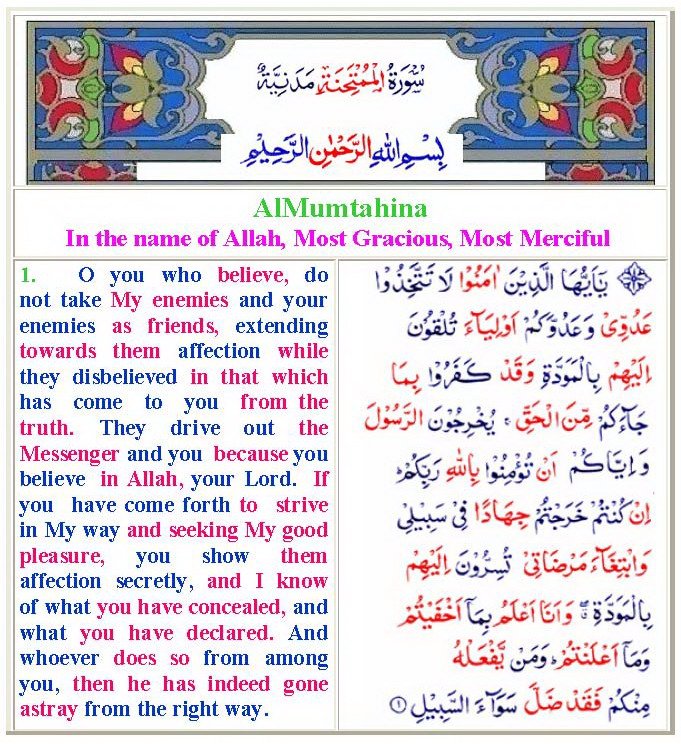 سُوْرَةُ الْمُمْتَحِنَةِ مَدَنِيَّةٌ
بِسْمِ اللهِ الرَّحْمٰنِ الرَّحِيْمِ
AlMumtahina
In the name of Allah, Most Gracious, Most Merciful
1. O you who believe, do
not take My enemies and your
enemies as friends, extending
towards them affection while
they disbelieved in that which
has come to you from the
truth. They drive out the
Messenger and you because you
believe in Allah, your Lord. If
you have come forth to strive
in My way and seeking My good
pleasure, you show them
affection secretly, and I know
of what you have concealed, and
what you have declared. And
whoever does so from among
you, then he has indeed gone
astray from the right way.
يٰۤاَيُّهَا الَّذِيْنَ اٰمَنُوْا لَا تَتَّخِذُوْا
عَدُوِّيْ وَعَدُوَّكُمْ اَوْلِيَآءَ تُلْقُوْنَ
اِلَيْهِمْ بِالْمَوَدَّةِ وَقَدْ كَفَرُوْا بِمَا
جَآءَكُمْ مِّنَ الْحَقِّ ۚ يُخْرِجُوْنَ الرَّسُوْلَ
وَاِيَّاكُمْ اَنْ تُؤْمِنُوْا بِاللهِ رَبِّكُمْ ؕ
اِنْ كُنْتُمْ خَرَجْتُمْ جِهَادًا فِيْ سَبِيْلِيْ
وَابْتِغَآءَ مَرْضَاتِيْ تُسِرُّوْنَ اِلَيْهِمْ
بِالْمَوَدَّةِ ۖ وَاَنَا اَعْلَمُ بِمَاۤ اَخْفَيْتُمْ
وَمَاۤ اَعْلَنْتُمْ ؕ وَمَنْ يَّفْعَلْهُ
مِنْكُمْ فَقَدْ ضَلَّ سَوَآءَ السَّبِيْلِ ۱